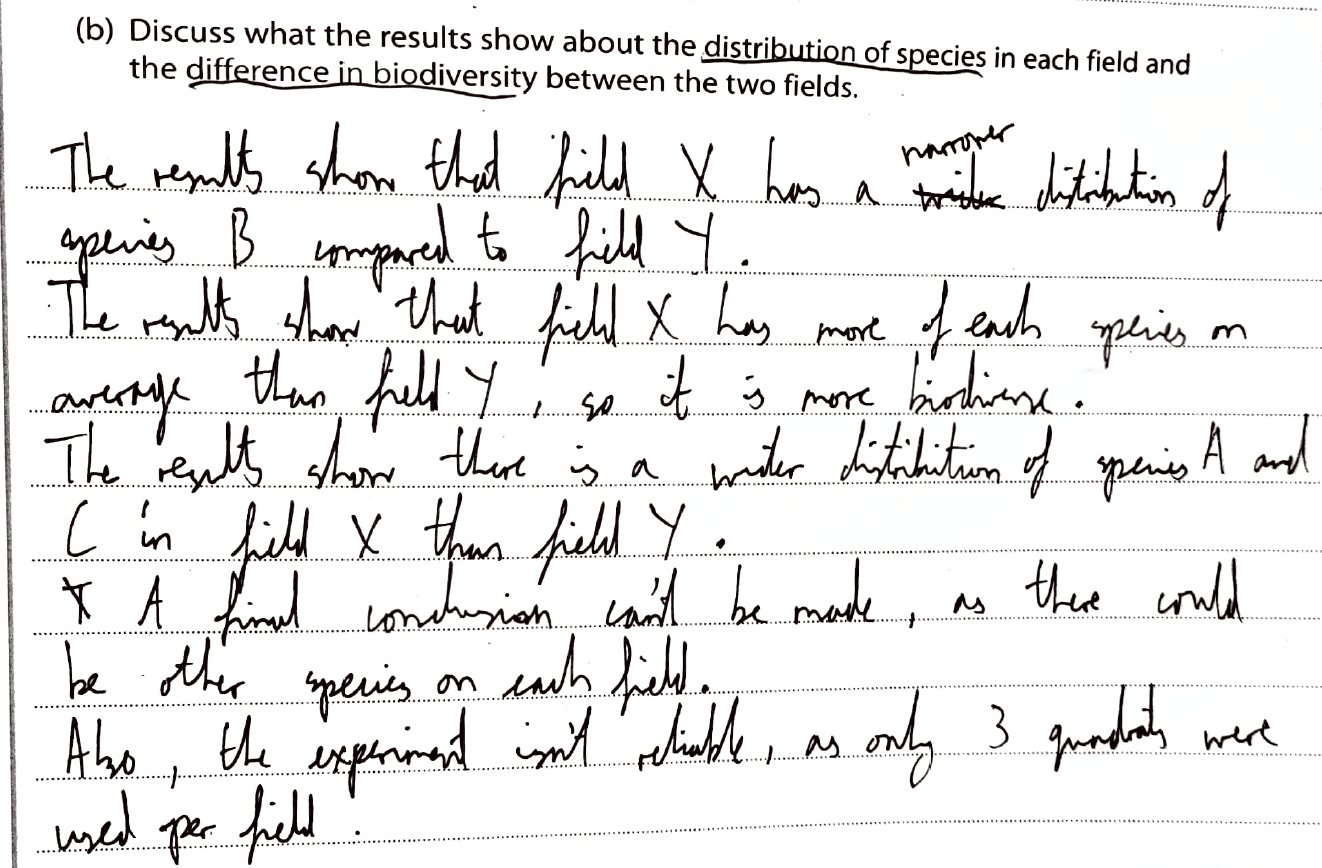 (b) Discuss what the results show about the distribution of species in each field and
the difference in biodiversity between the two fields.
narrower
The results show that field X has a wider distribution of
species B compared to field Y.
The results show that field X has more of each species on
average than field Y, so it is more biodiverse.
The results show there is a wider distribution of species A and
C in field X than field Y.
A final conclusion can't be made, as there could
be other species on each field.
Also, the experiment isn't reliable, as only 3 quadrats were
used per field.